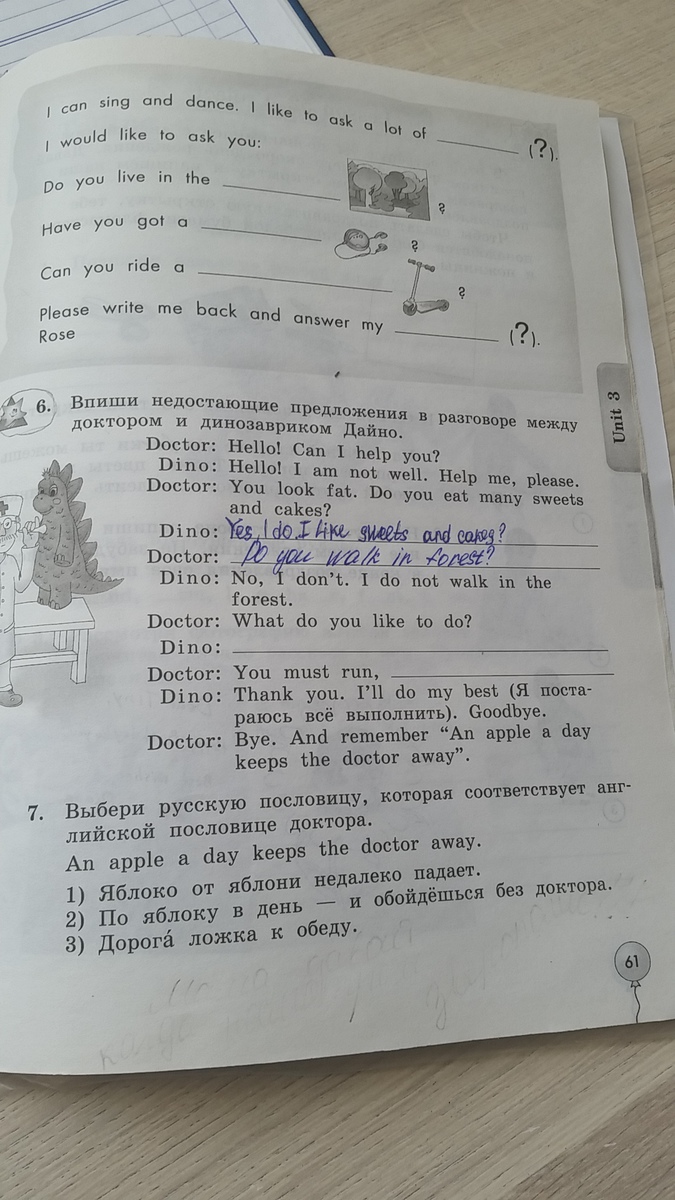 I can sing and dance. I like to ask a lot of ________ (?).
I would like to ask you:
Do you live in the ________ ?
Have you got a ________ ?
Can you ride a ________ ?
Please write me back and answer my ________ (?).
Rose
Unit 3
6. Впиши недостающие предложения в разговоре между
доктором и динозавриком Дайно.
Doctor: Hello! Can I help you?
Dino: Hello! I am not well. Help me, please.
Doctor: You look fat. Do you eat many sweets
and cakes?
Dino: Yes, I do. I like sweets and cakes?
Doctor: Do you walk in forest?
Dino: No, I don't. I do not walk in the
forest.
Doctor: What do you like to do?
Dino: ________
Doctor: You must run, ________
Dino: Thank you. I'll do my best (Я поста-
раюсь всё выполнить). Goodbye.
Doctor: Bye. And remember “An apple a day
keeps the doctor away”.
7. Выбери русскую пословицу, которая соответствует анг-
лийской пословице доктора.
An apple a day keeps the doctor away.
1) Яблоко от яблони недалеко падает.
2) По яблоку в день — и обойдёшься без доктора.
3) Дорога́ ложка к обеду.
61